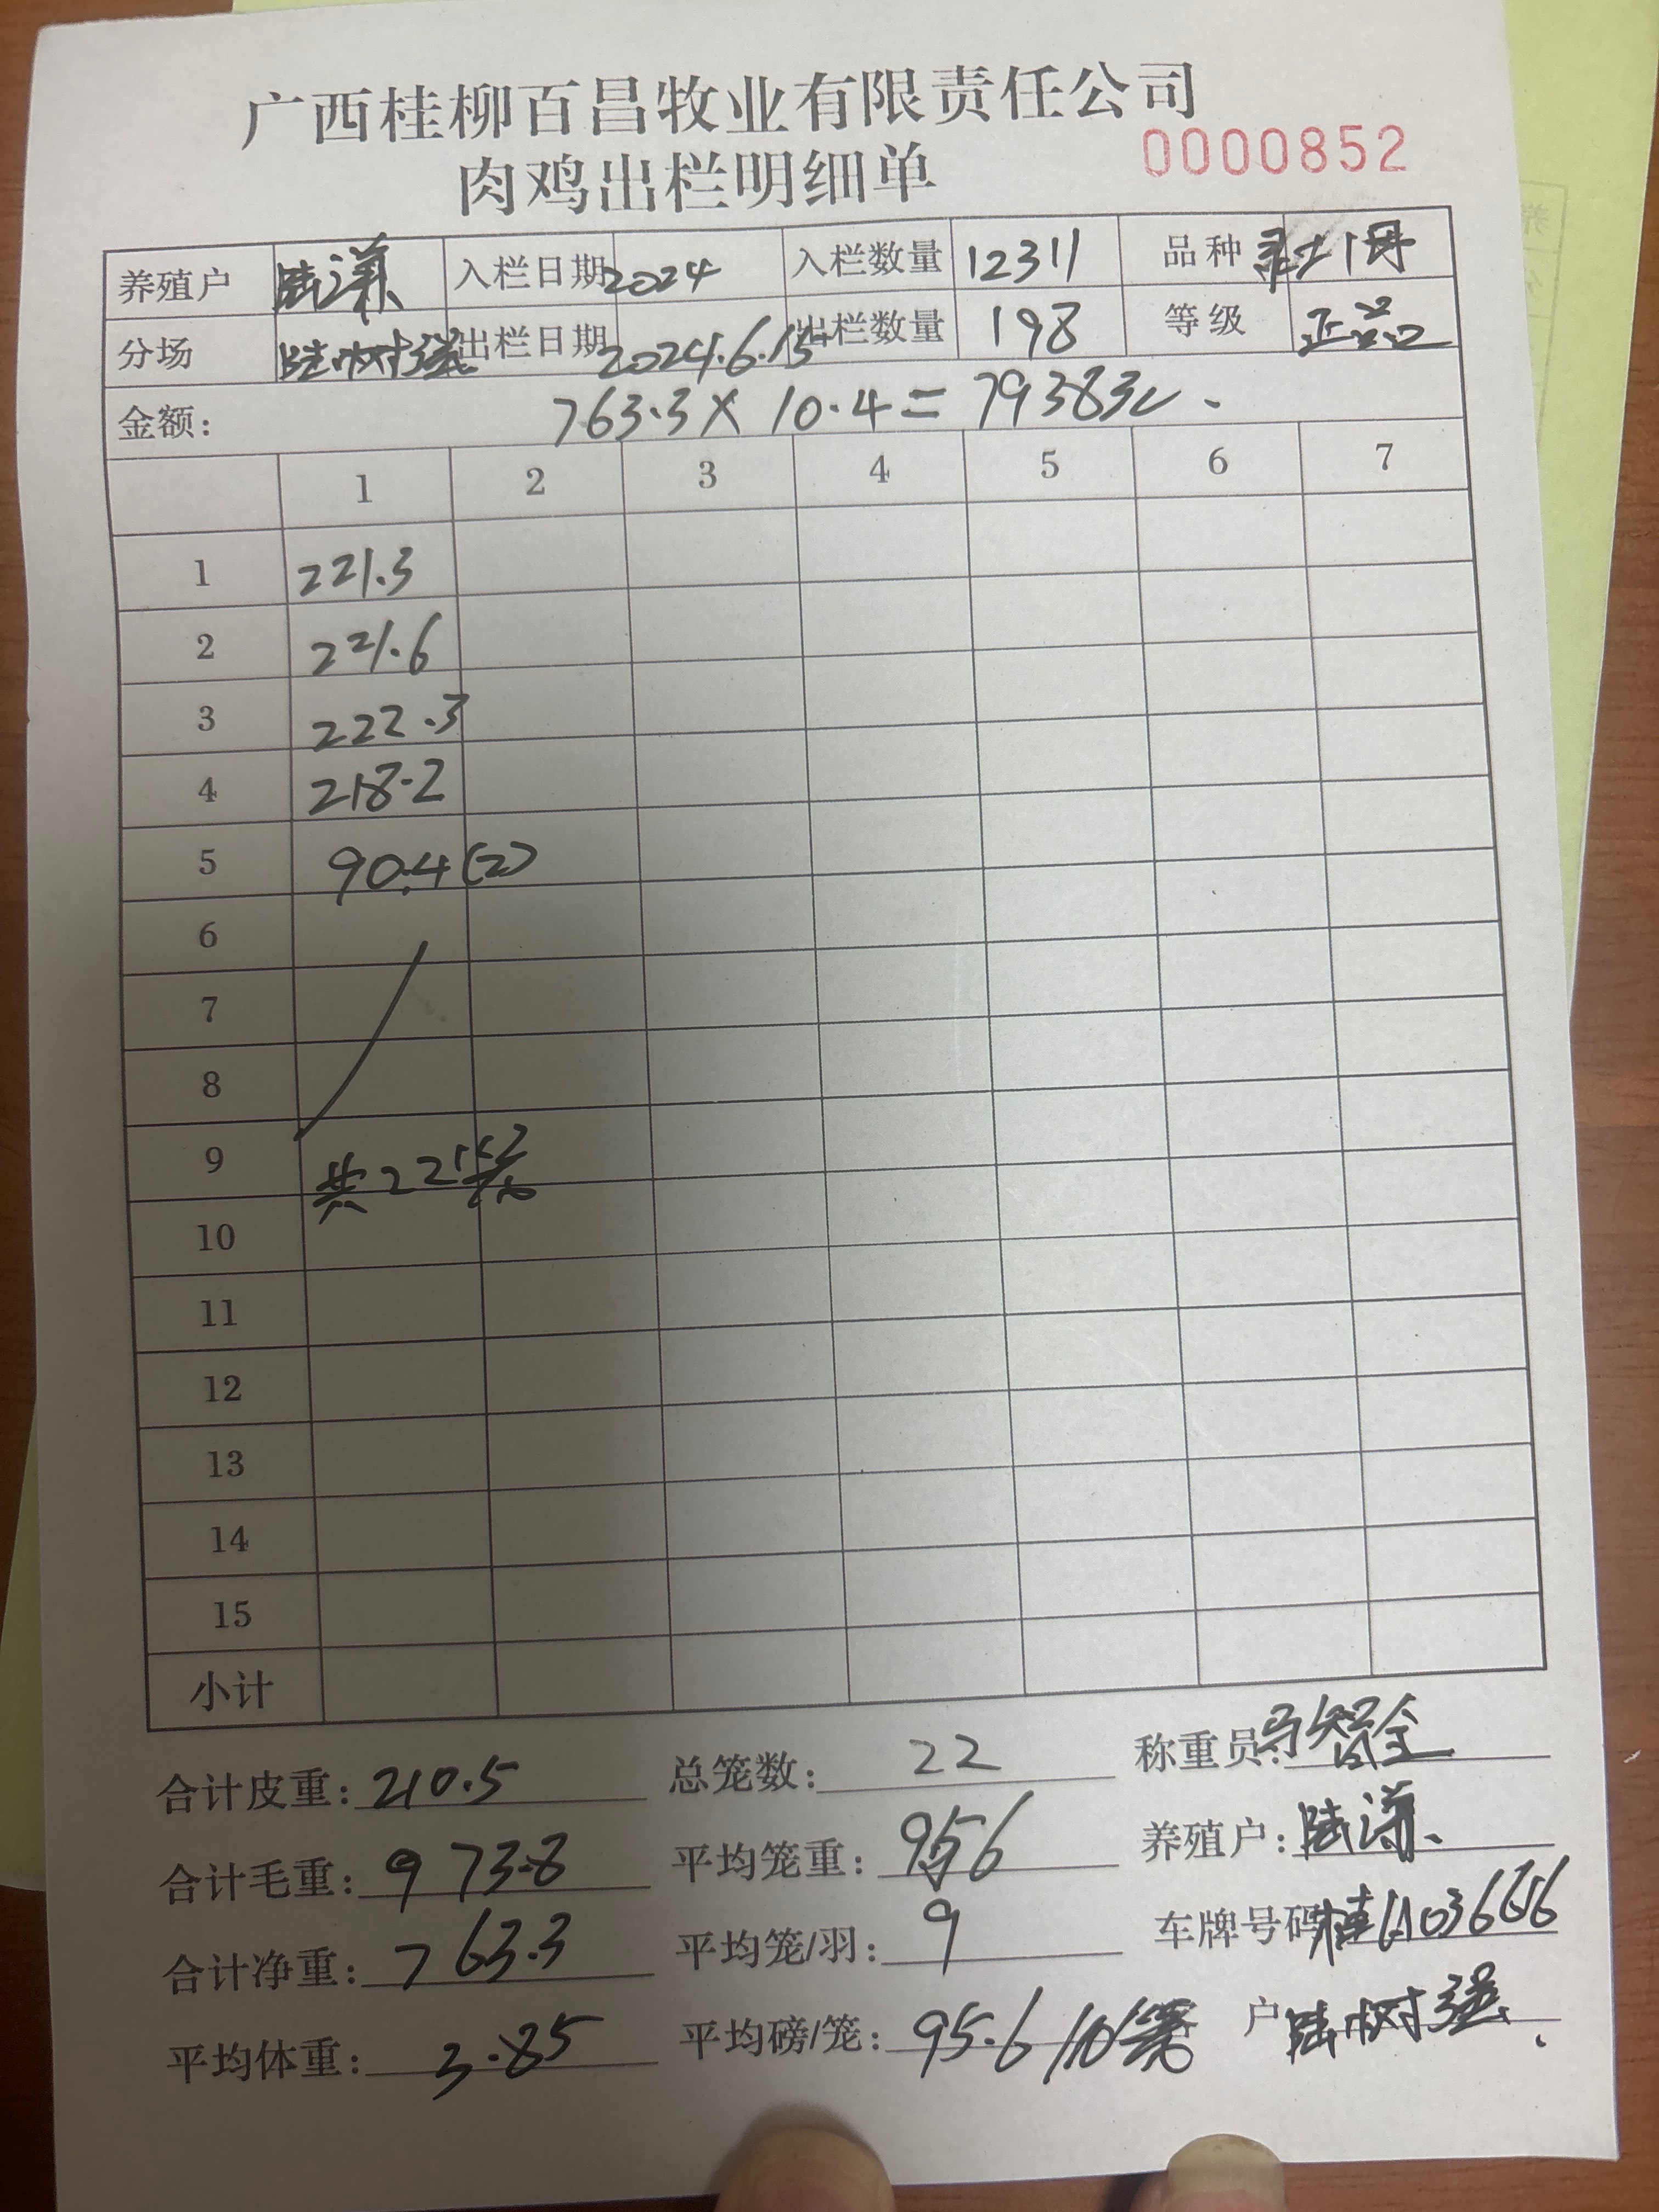 广西桂柳百昌牧业有限责任公司
肉鸡出栏明细单 0000852
养殖户 陆洋 入栏日期 2024 入栏数量 12311 品种
分场 陆树强 出栏日期 2024.6.15 出栏数量 198 等级 正品
金额: 763.3 × 10.4 = 7938.32
1 2 3 4 5 6 7
1 221.3
2 221.6
3 222.3
4 218.2
5 90.4(2)
6
7
8
9 共22笼
10
11
12
13
14
15
小计
合计皮重: 210.5 总笼数: 22 称重员: 智全
合计毛重: 973.8 平均笼重: 95.6 养殖户: 陆洋
合计净重: 763.3 平均笼/羽: 9 车牌号码
平均体重: 3.85 平均磅/笼: 95.6/10笼 户 陆树强